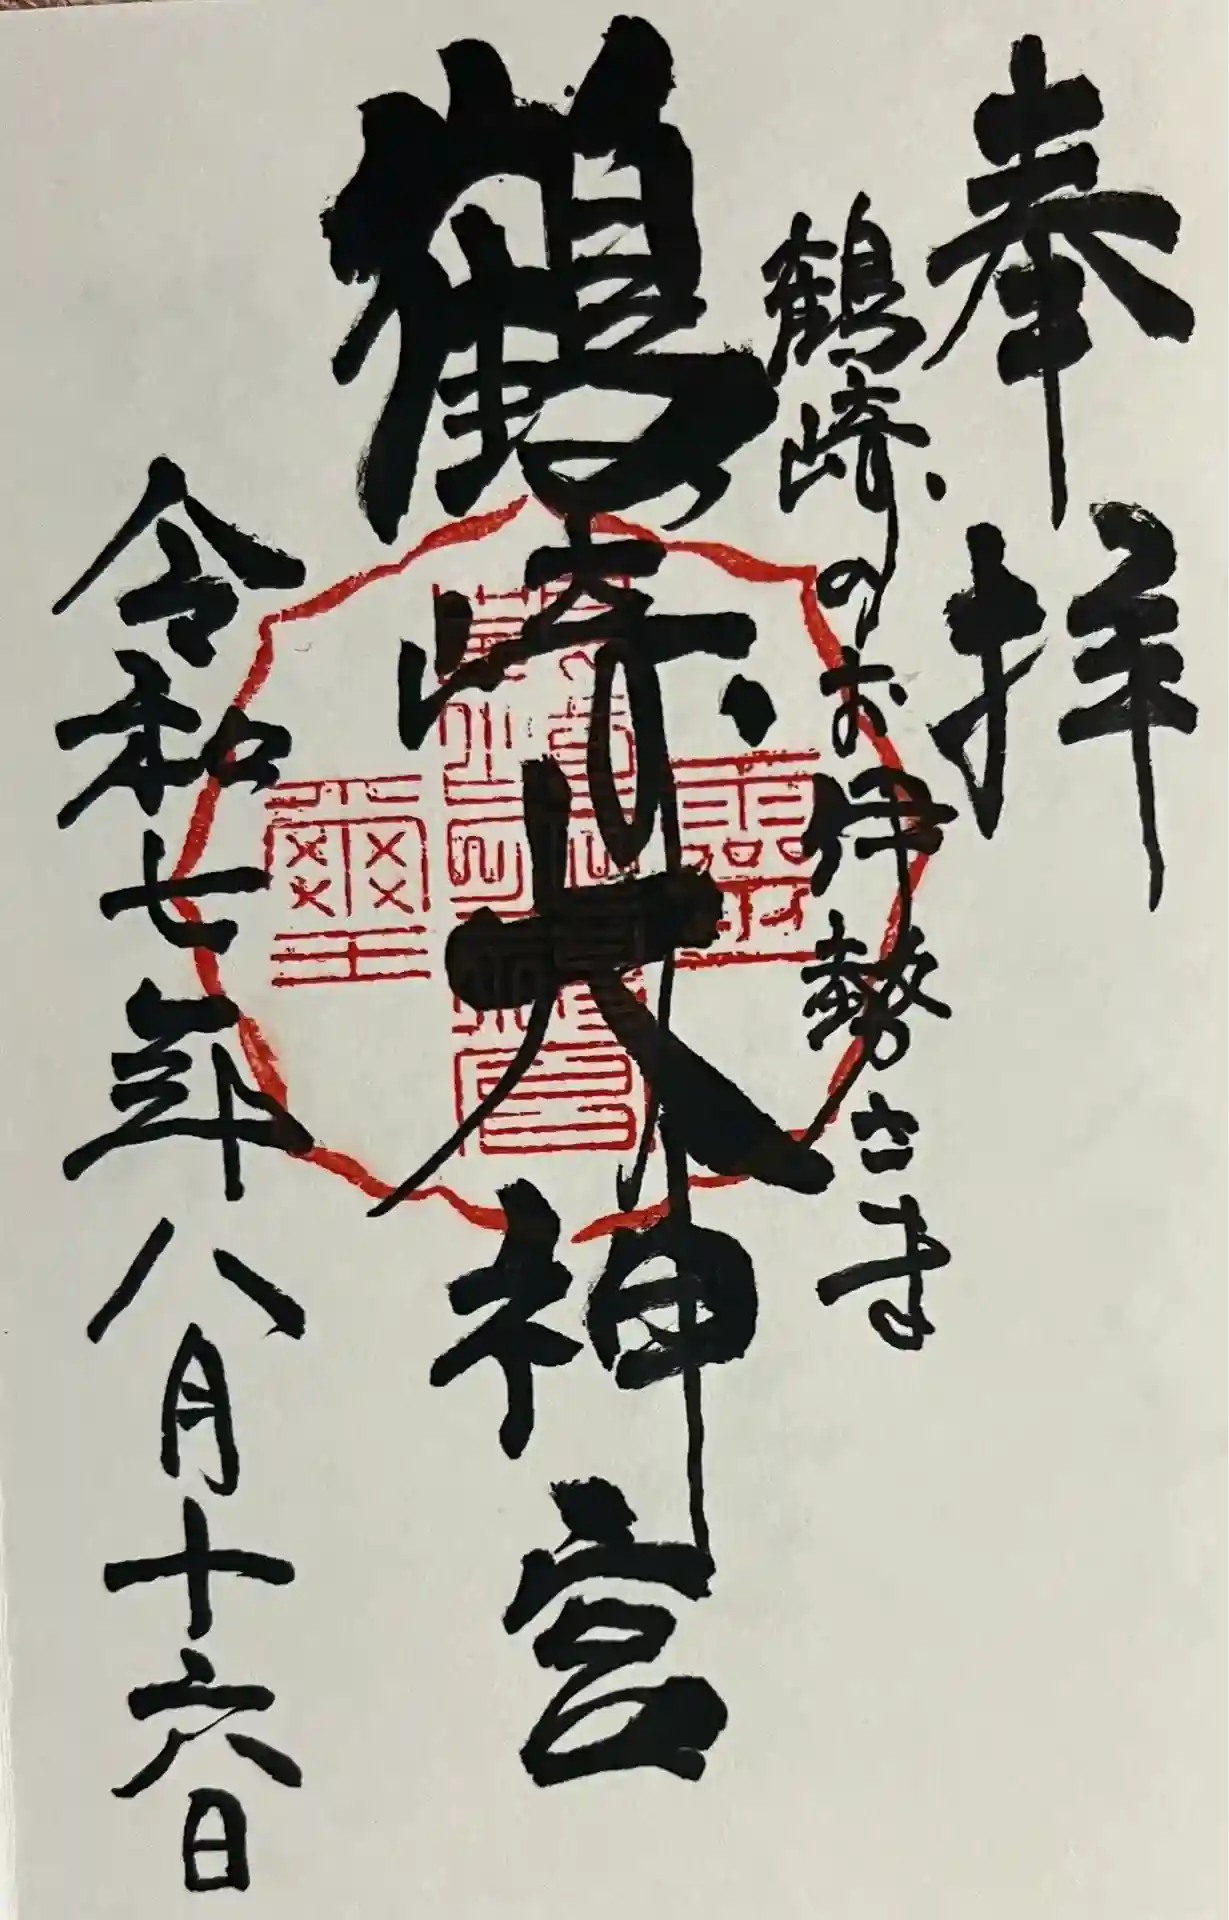 奉拝
鶴崎のお伊勢さま
鶴崎大神宮
令和七年八月十六日